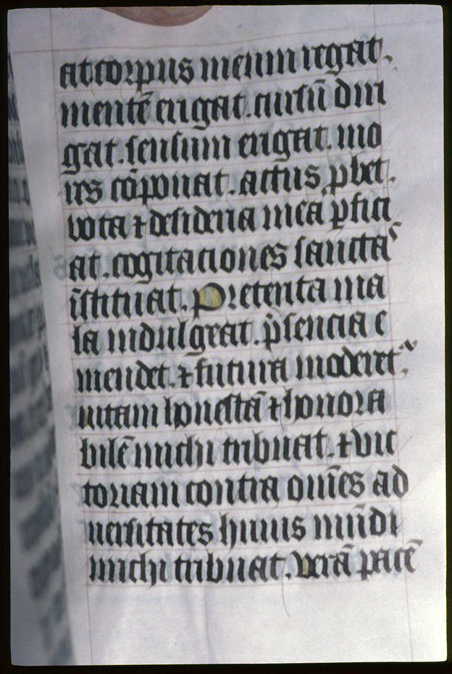 at corpus meum regat.
mentē erigat. cursū diri
gat. sensum erigat. mo
res cōponat. actus ꝓbet.
vota ⁊ desideria mea ꝑfici
at. cogitationes sancta⁹
īstituat. Preterita ma
la indulgeat. p̄sencia e
mendet. ⁊ futura moderet᷑.
uitam honestā ⁊ honora
bilē michi tribuat. ⁊ vic
toriam contra om̄es ad
uersitates huius mūdi
michi tribuat. verā pacē